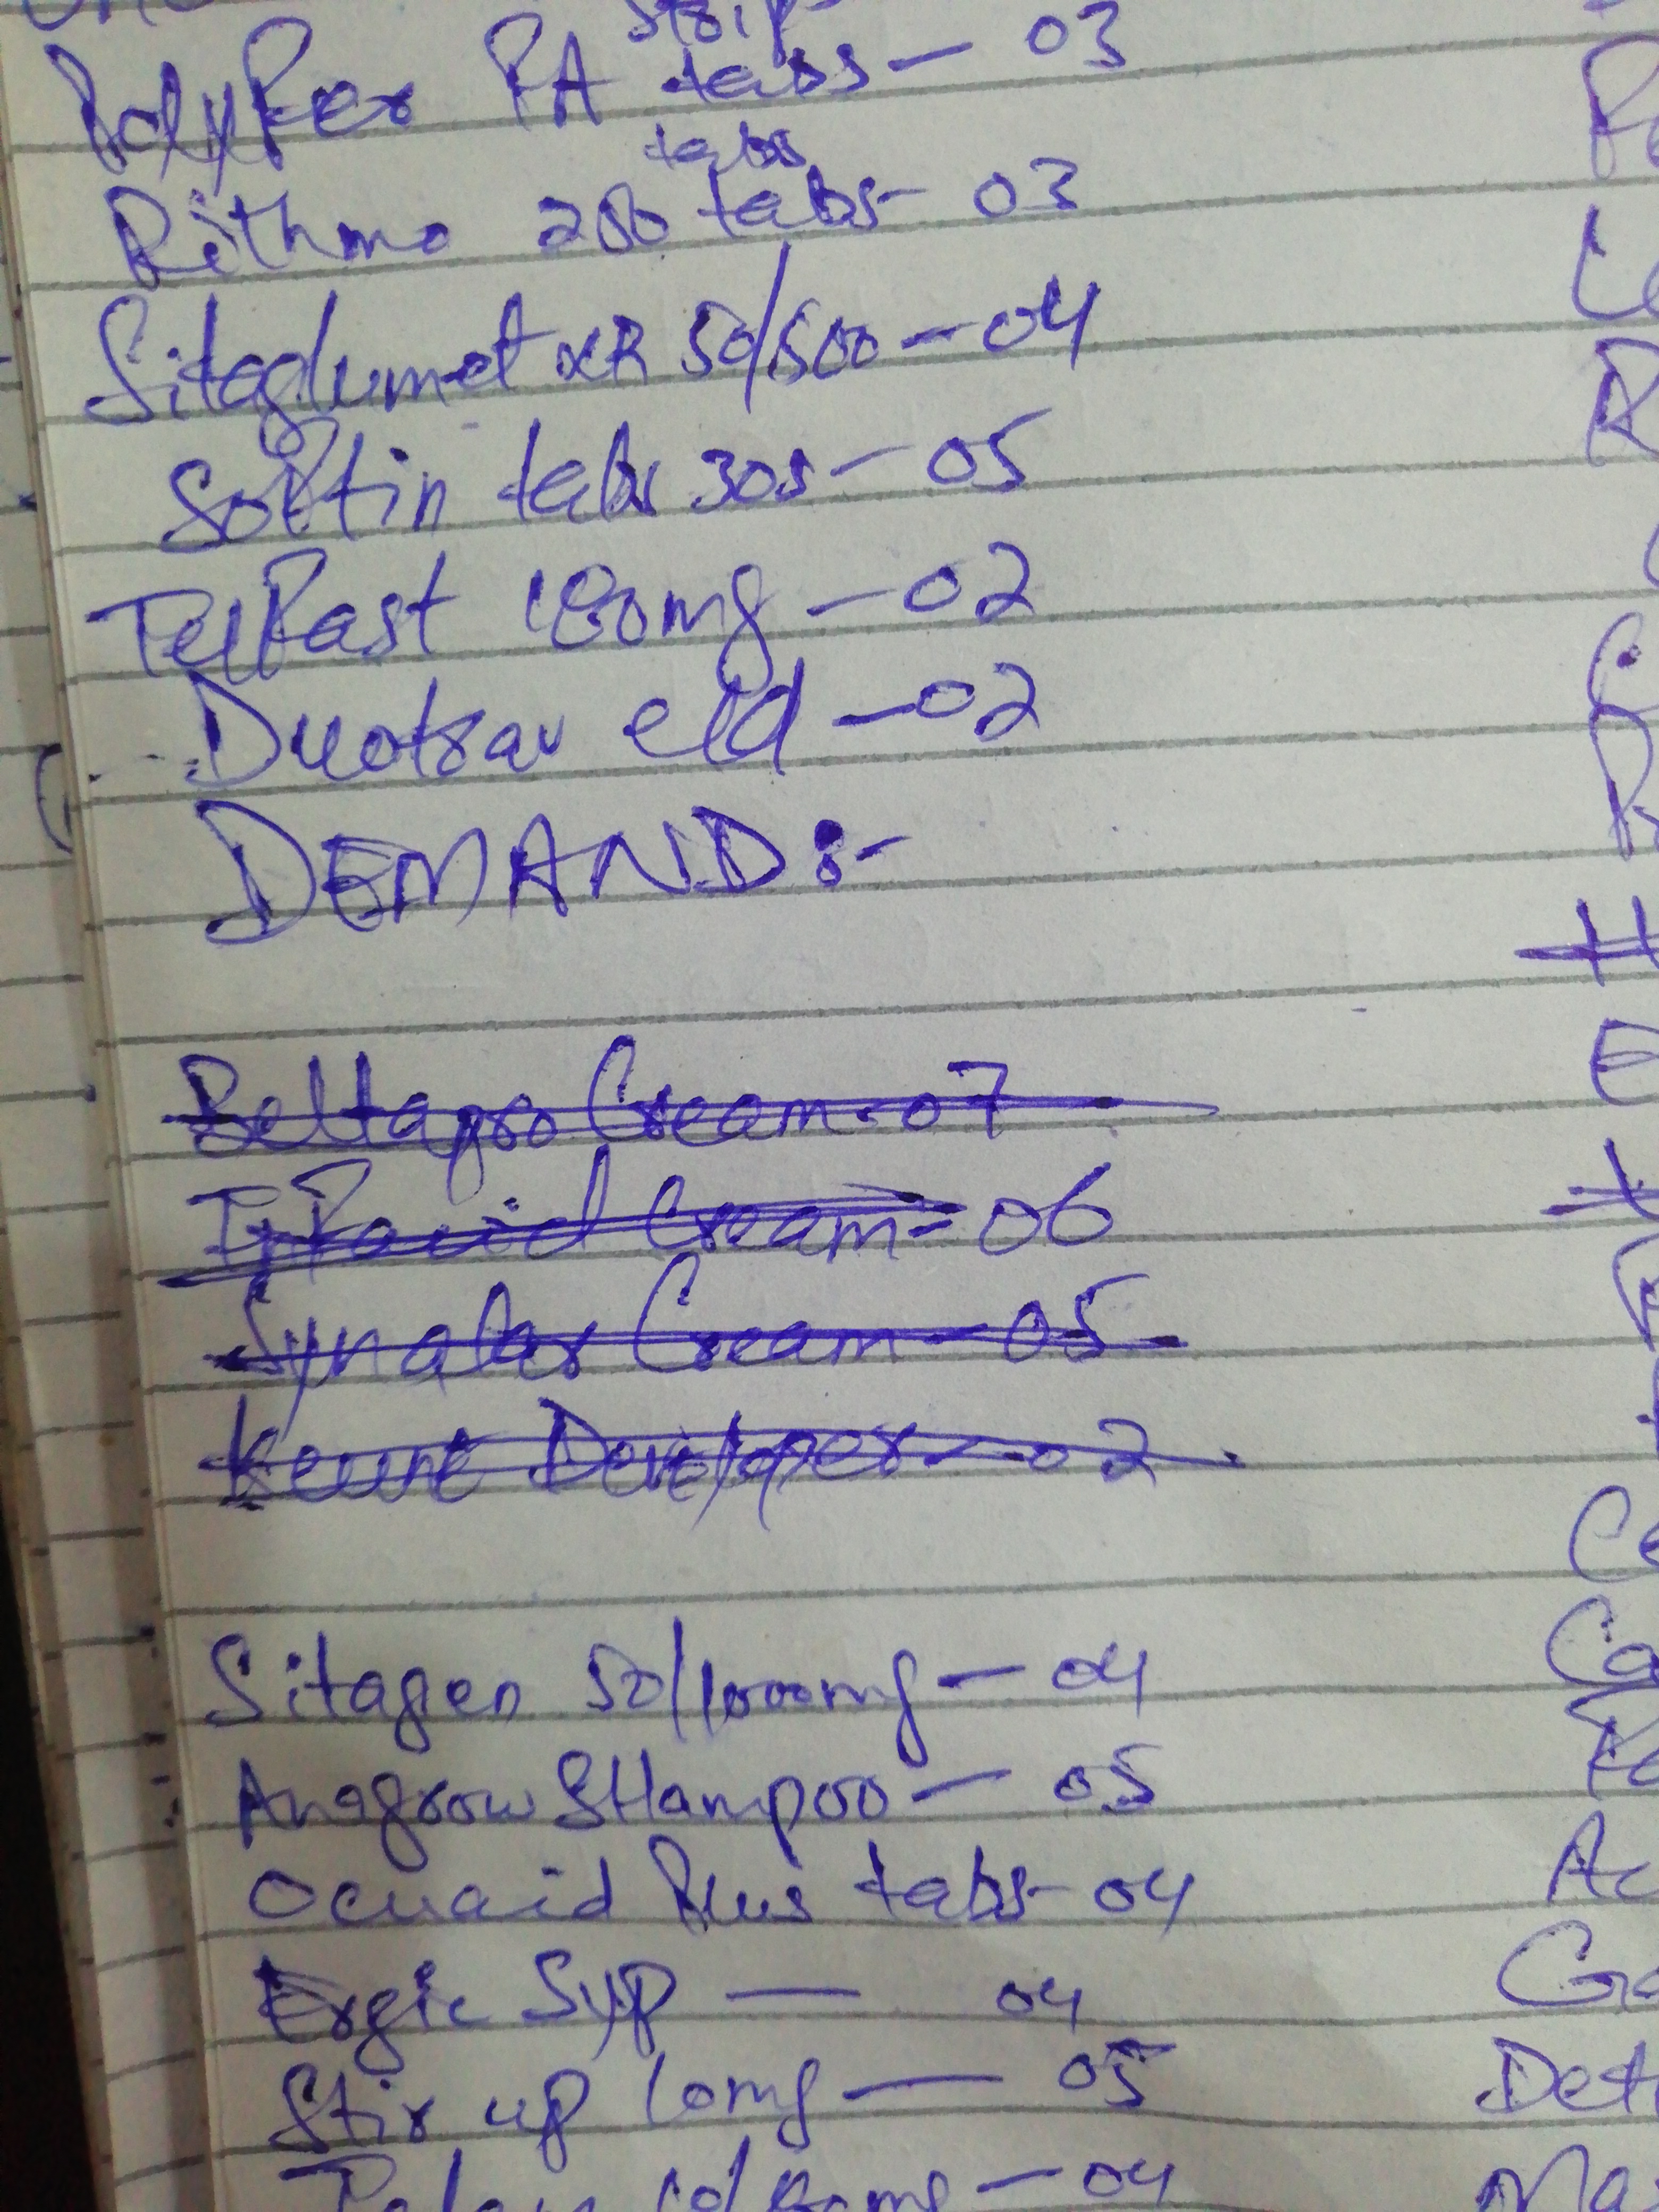 strip
Polyfer FA tabs - 03
tabs
Rithmo 250 tabs - 03
Sitaglumet XR 50/500 - 04
Softin tabs 30s - 05
Telfast 180mg - 02
Duotrav e/d - 02
DEMAND :-
Beltapro Cream - 07
Cream = 06
Synalar Cream - 05
Keune Developer - 02
Sitagen 50/1000mg - 04
Anagrow SHampoo - 05
Ocuaid Plus tabs - 04
Ergic Syp - 04
Stir up 10mg - 05
- 04